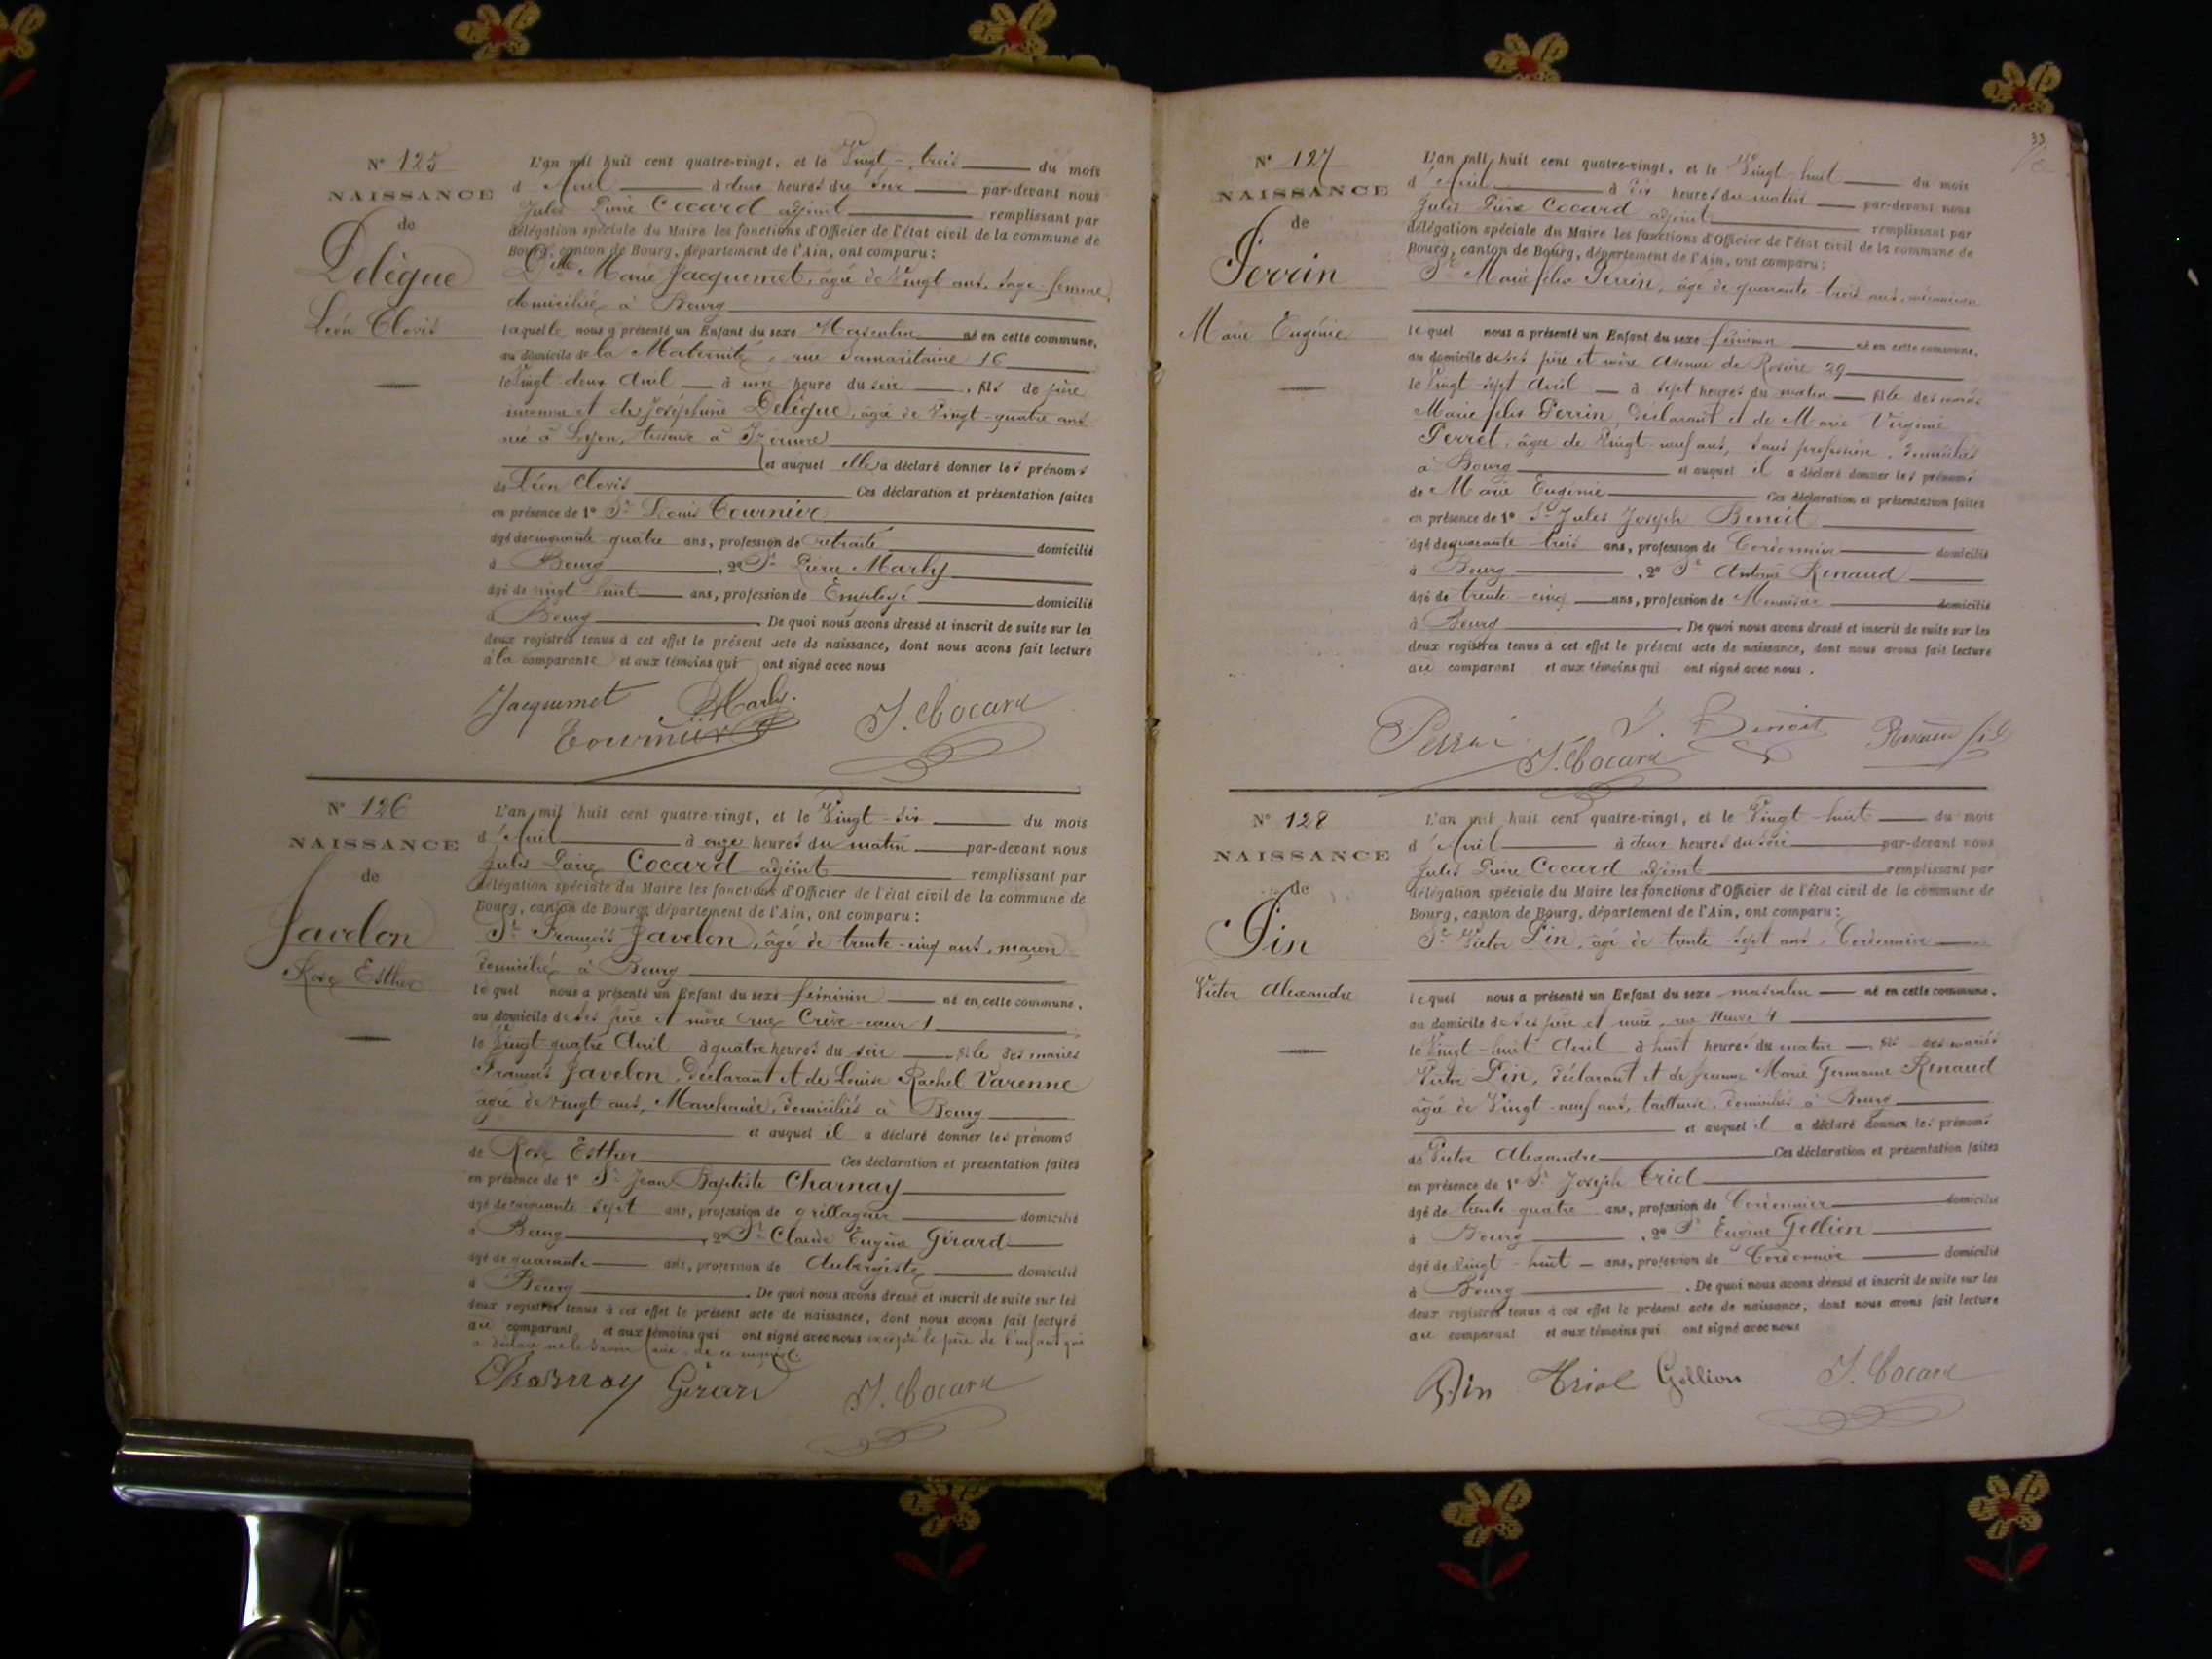 N° 125
NAISSANCE
de
Delègue
Léon Clovis
L'an mil huit cent quatre-vingt, et le Vingt-trois du mois
d'Avril à deux heures du soir par-devant nous
Jules Pierre Cocard adjoint remplissant par
délégation spéciale du Maire les fonctions d'Officier de l'état civil de la commune de
Bourg, canton de Bourg, département de l'Ain, ont comparu :
Dlle Marie Jacquemet, âgée de Vingt ans, sage-femme,
domiciliée à Bourg
laquelle nous a présenté un Enfant du sexe Masculin né en cette commune,
au domicile de la Maternité, rue Samaritaine 16
le Vingt deux Avril à une heure du soir, fils de père
inconnu et de Joséphine Delègue, âgée de Vingt-quatre ans
née à Lyon, tisseuse à
et auquel elle a déclaré donner les prénoms
de Léon Clovis Ces déclaration et présentation faites
en présence de 1° Sr Louis Tournier
âgé de cinquante quatre ans, profession de retraité domicilié
à Bourg, 2° Sr Pierre Marly
âgé de vingt-huit ans, profession de Employé domicilié
à Bourg. De quoi nous avons dressé et inscrit de suite sur les
deux registres tenus à cet effet le présent acte de naissance, dont nous avons fait lecture
à la comparante et aux témoins qui ont signé avec nous
Jacquemet Marly.
Tournier J. Cocard
N° 126
NAISSANCE
de
Javelon
Rose Esther
L'an mil huit cent quatre-vingt, et le Vingt-six du mois
d'Avril à onze heures du matin par-devant nous
Jules Pierre Cocard adjoint remplissant par
délégation spéciale du Maire les fonctions d'Officier de l'état civil de la commune de
Bourg, canton de Bourg, département de l'Ain, ont comparu :
Sr François Javelon, âgé de trente-cinq ans, maçon
domicilié à Bourg
lequel nous a présenté un Enfant du sexe féminin né en cette commune,
au domicile de ses père et mère rue Crève-coeur 1
le Vingt quatre Avril à quatre heures du soir fille des mariés
François Javelon, déclarant et de Louise Rachel Varenne
âgée de vingt ans, Marchande, domiciliés à Bourg
et auquel il a déclaré donner les prénoms
de Rose Esther Ces déclaration et présentation faites
en présence de 1° Sr Jean Baptiste Charnay
âgé de cinquante sept ans, profession de grillageur domicilié
à Bourg, 2° Sr Claude Eugène Girard
âgé de quarante ans, profession de Aubergiste domicilié
à Bourg. De quoi nous avons dressé et inscrit de suite sur les
deux registres tenus à cet effet le présent acte de naissance, dont nous avons fait lecture
au comparant et aux témoins qui ont signé avec nous excepté le père de l'enfant qui
a déclaré ne le savoir faire de ce requis
Charnay Girard J. Cocard
33
N° 127
NAISSANCE
de
Perrin
Marie Eugénie
L'an mil huit cent quatre-vingt, et le Vingt-huit du mois
d'Avril à dix heures du matin par-devant nous
Jules Pierre Cocard adjoint remplissant par
délégation spéciale du Maire les fonctions d'Officier de l'état civil de la commune de
Bourg, canton de Bourg, département de l'Ain, ont comparu :
Sr Marie felix Perrin, âgé de quarante-trois ans, mécanicien
lequel nous a présenté un Enfant du sexe féminin né en cette commune,
au domicile de ses père et mère Avenue de Rosière 29
le Vingt-sept Avril à sept heures du matin fille des mariés
Marie felix Perrin, déclarant et de Marie Virginie
Perret, âgée de Vingt-neuf ans, sans profession, domiciliés
à Bourg et auquel il a déclaré donner les prénoms
de Marie Eugénie Ces déclaration et présentation faites
en présence de 1° Sr Jules Joseph Benoit
âgé de quarante trois ans, profession de Cordonnier domicilié
à Bourg, 2° Sr Antoine Renaud
âgé de trente-cinq ans, profession de Menuisier domicilié
à Bourg. De quoi nous avons dressé et inscrit de suite sur les
deux registres tenus à cet effet le présent acte de naissance, dont nous avons fait lecture
au comparant et aux témoins qui ont signé avec nous.
Perrin J. Benoit Renaud fils
J. Cocard
N° 128
NAISSANCE
de
Pin
Victor Alexandre
L'an mil huit cent quatre-vingt, et le Vingt-huit du mois
d'Avril à deux heures du soir par-devant nous
Jules Pierre Cocard adjoint remplissant par
délégation spéciale du Maire les fonctions d'Officier de l'état civil de la commune de
Bourg, canton de Bourg, département de l'Ain, ont comparu :
Sr Victor Pin, âgé de trente-sept ans, Cordonnier
lequel nous a présenté un Enfant du sexe masculin né en cette commune,
au domicile de ses père et mère, rue Neuve 4
le Vingt-huit Avril à huit heures du matin fils des mariés
Victor Pin, déclarant et de Jeanne Marie Germaine Renaud
âgée de Vingt-neuf ans, tailleuse, domiciliés à Bourg
et auquel il a déclaré donner les prénoms
de Victor Alexandre Ces déclaration et présentation faites
en présence de 1° Sr Joseph Triol
âgé de trente-quatre ans, profession de Cordonnier domicilié
à Bourg, 2° Sr Eugène Gellion
âgé de vingt-huit ans, profession de Cordonnier domicilié
à Bourg. De quoi nous avons dressé et inscrit de suite sur les
deux registres tenus à cet effet le présent acte de naissance, dont nous avons fait lecture
au comparant et aux témoins qui ont signé avec nous
Pin Triol Gellion J. Cocard